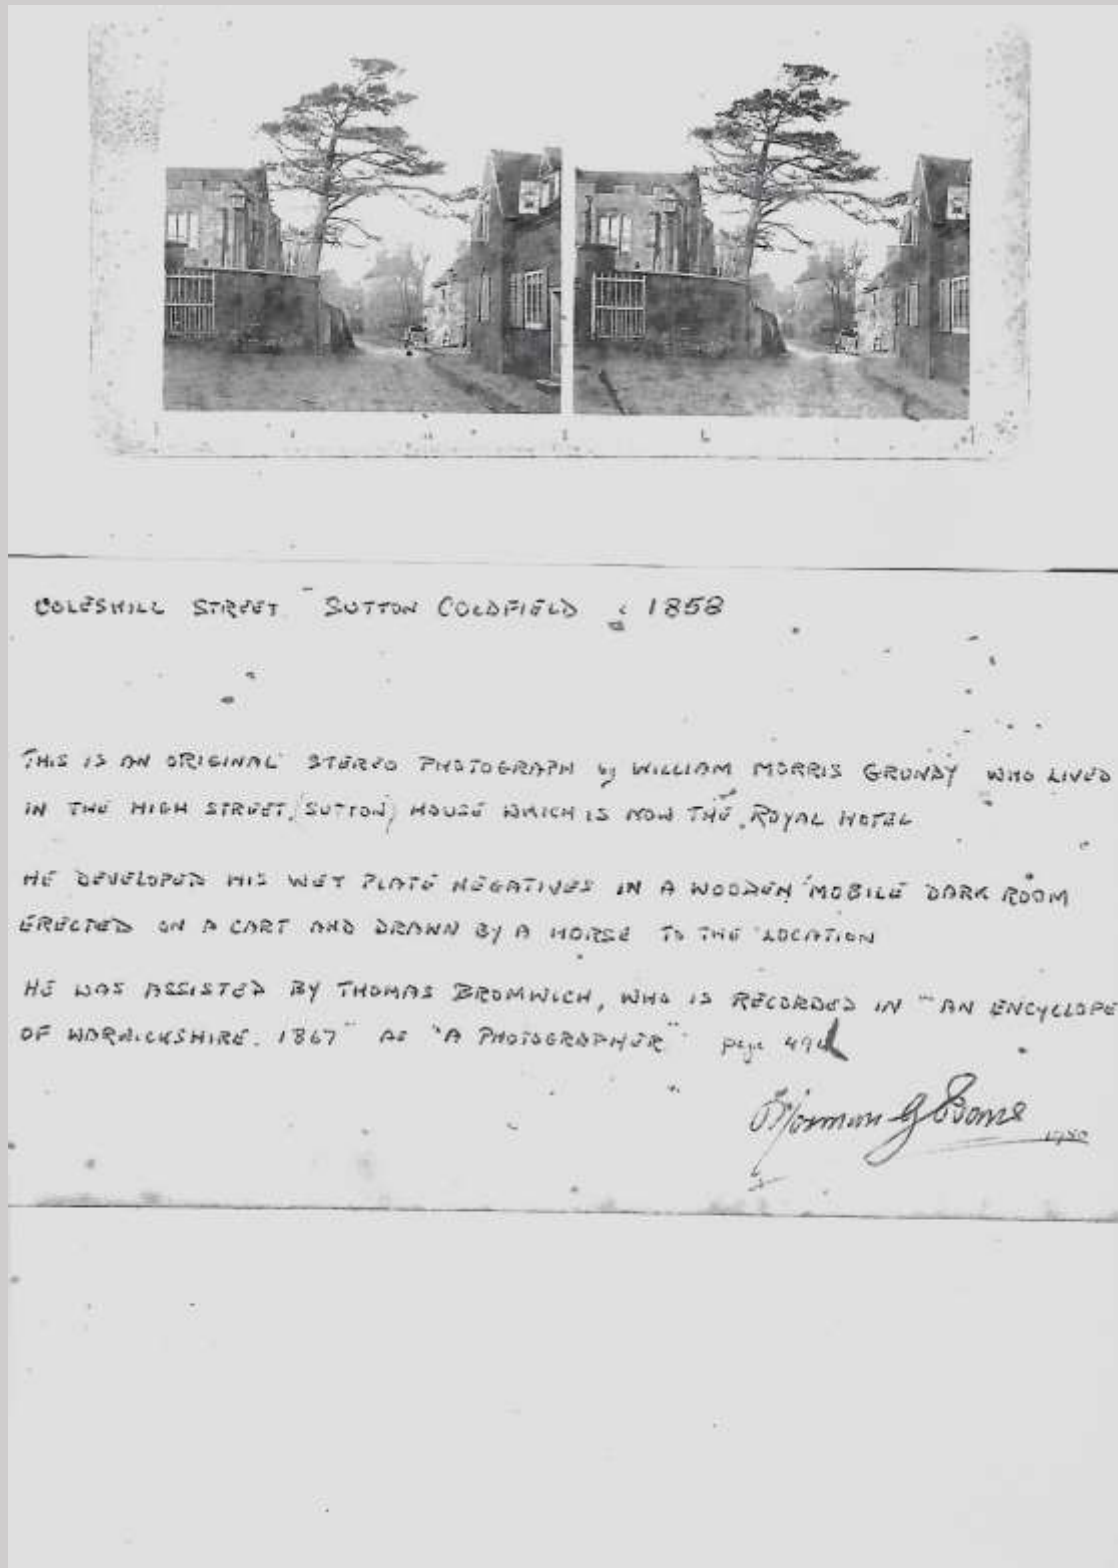 COLESHILL STREET SUTTON COLDFIELD c 1858
THIS IS AN ORIGINAL STEREO PHOTOGRAPH by WILLIAM MORRIS GRUNDY WHO LIVED
IN THE HIGH STREET, (SUTTON) HOUSE WHICH IS NOW THE ROYAL HOTEL
HE DEVELOPED HIS WET PLATE NEGATIVES IN A WOODEN MOBILE DARK ROOM
ERECTED ON A CART AND DRAWN BY A HORSE TO THE LOCATION
HE WAS ASSISTED BY THOMAS BROMWICH, WHO IS RECORDED IN "AN ENCYCLOPE
OF WARWICKSHIRE. 1867" AS "A PHOTOGRAPHER" page
Norman G